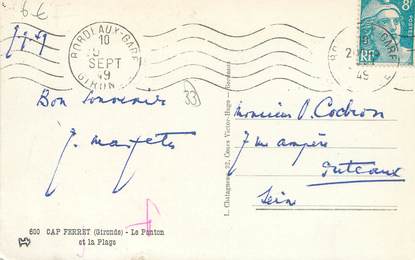 6 €
9.9.49
BORDEAUX-GARE
10
SEPT
49
GIRONDE
8F
RF
49
Bon Souvenir
33
Monsieur P. Cochon
7 rue ampère
Puteaux
Seine
L. Chatagneau, 92, Cours Victor-Hugo - Bordeaux
600 CAP FERRET (Gironde) - Le Ponton
et la Plage